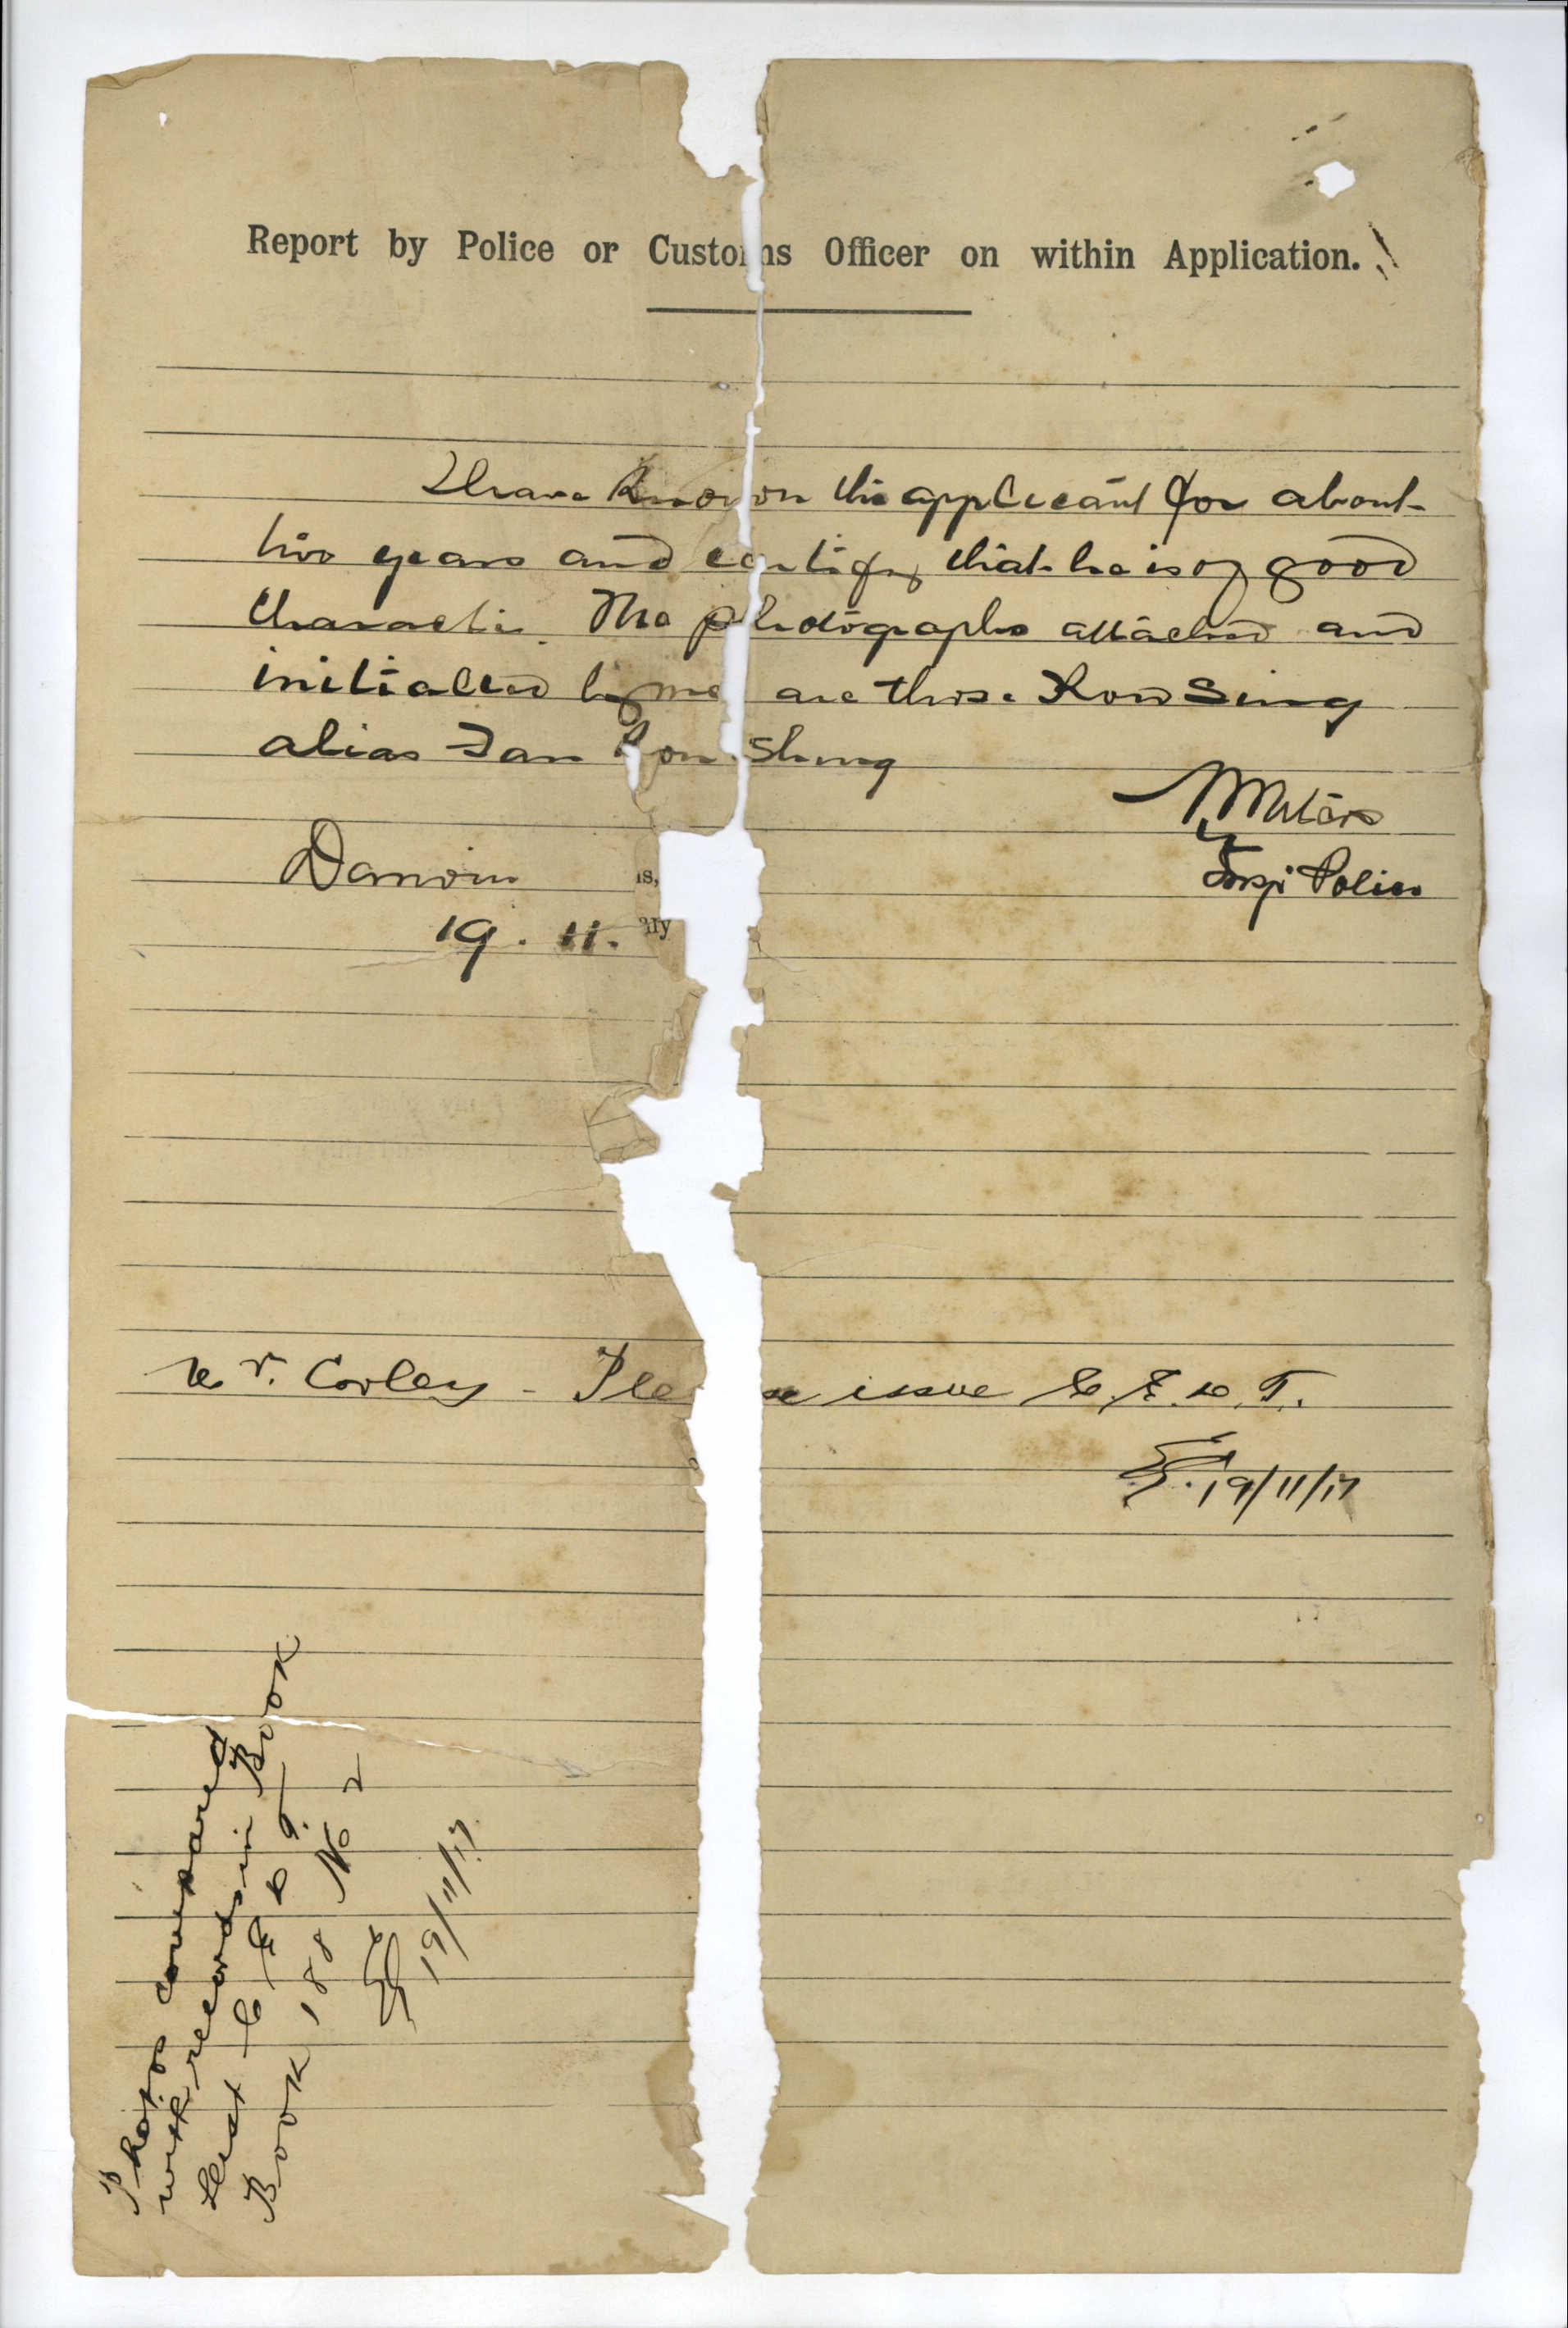 Report by Police or Customs Officer on within Application.
I have known the applicant for about
two years and certify that he is of good
character. The photographs attached and
initialled by me are those Kow Sing
alias Lan Kon Shing
Waters
Insp. Police
Darwin
is,
19. 11.
Mr. Corley - Please issue C.E.D.T.
19/11/17
Photos compared
with records in Book
last C E D T
Book 188 No 2
19/11/17